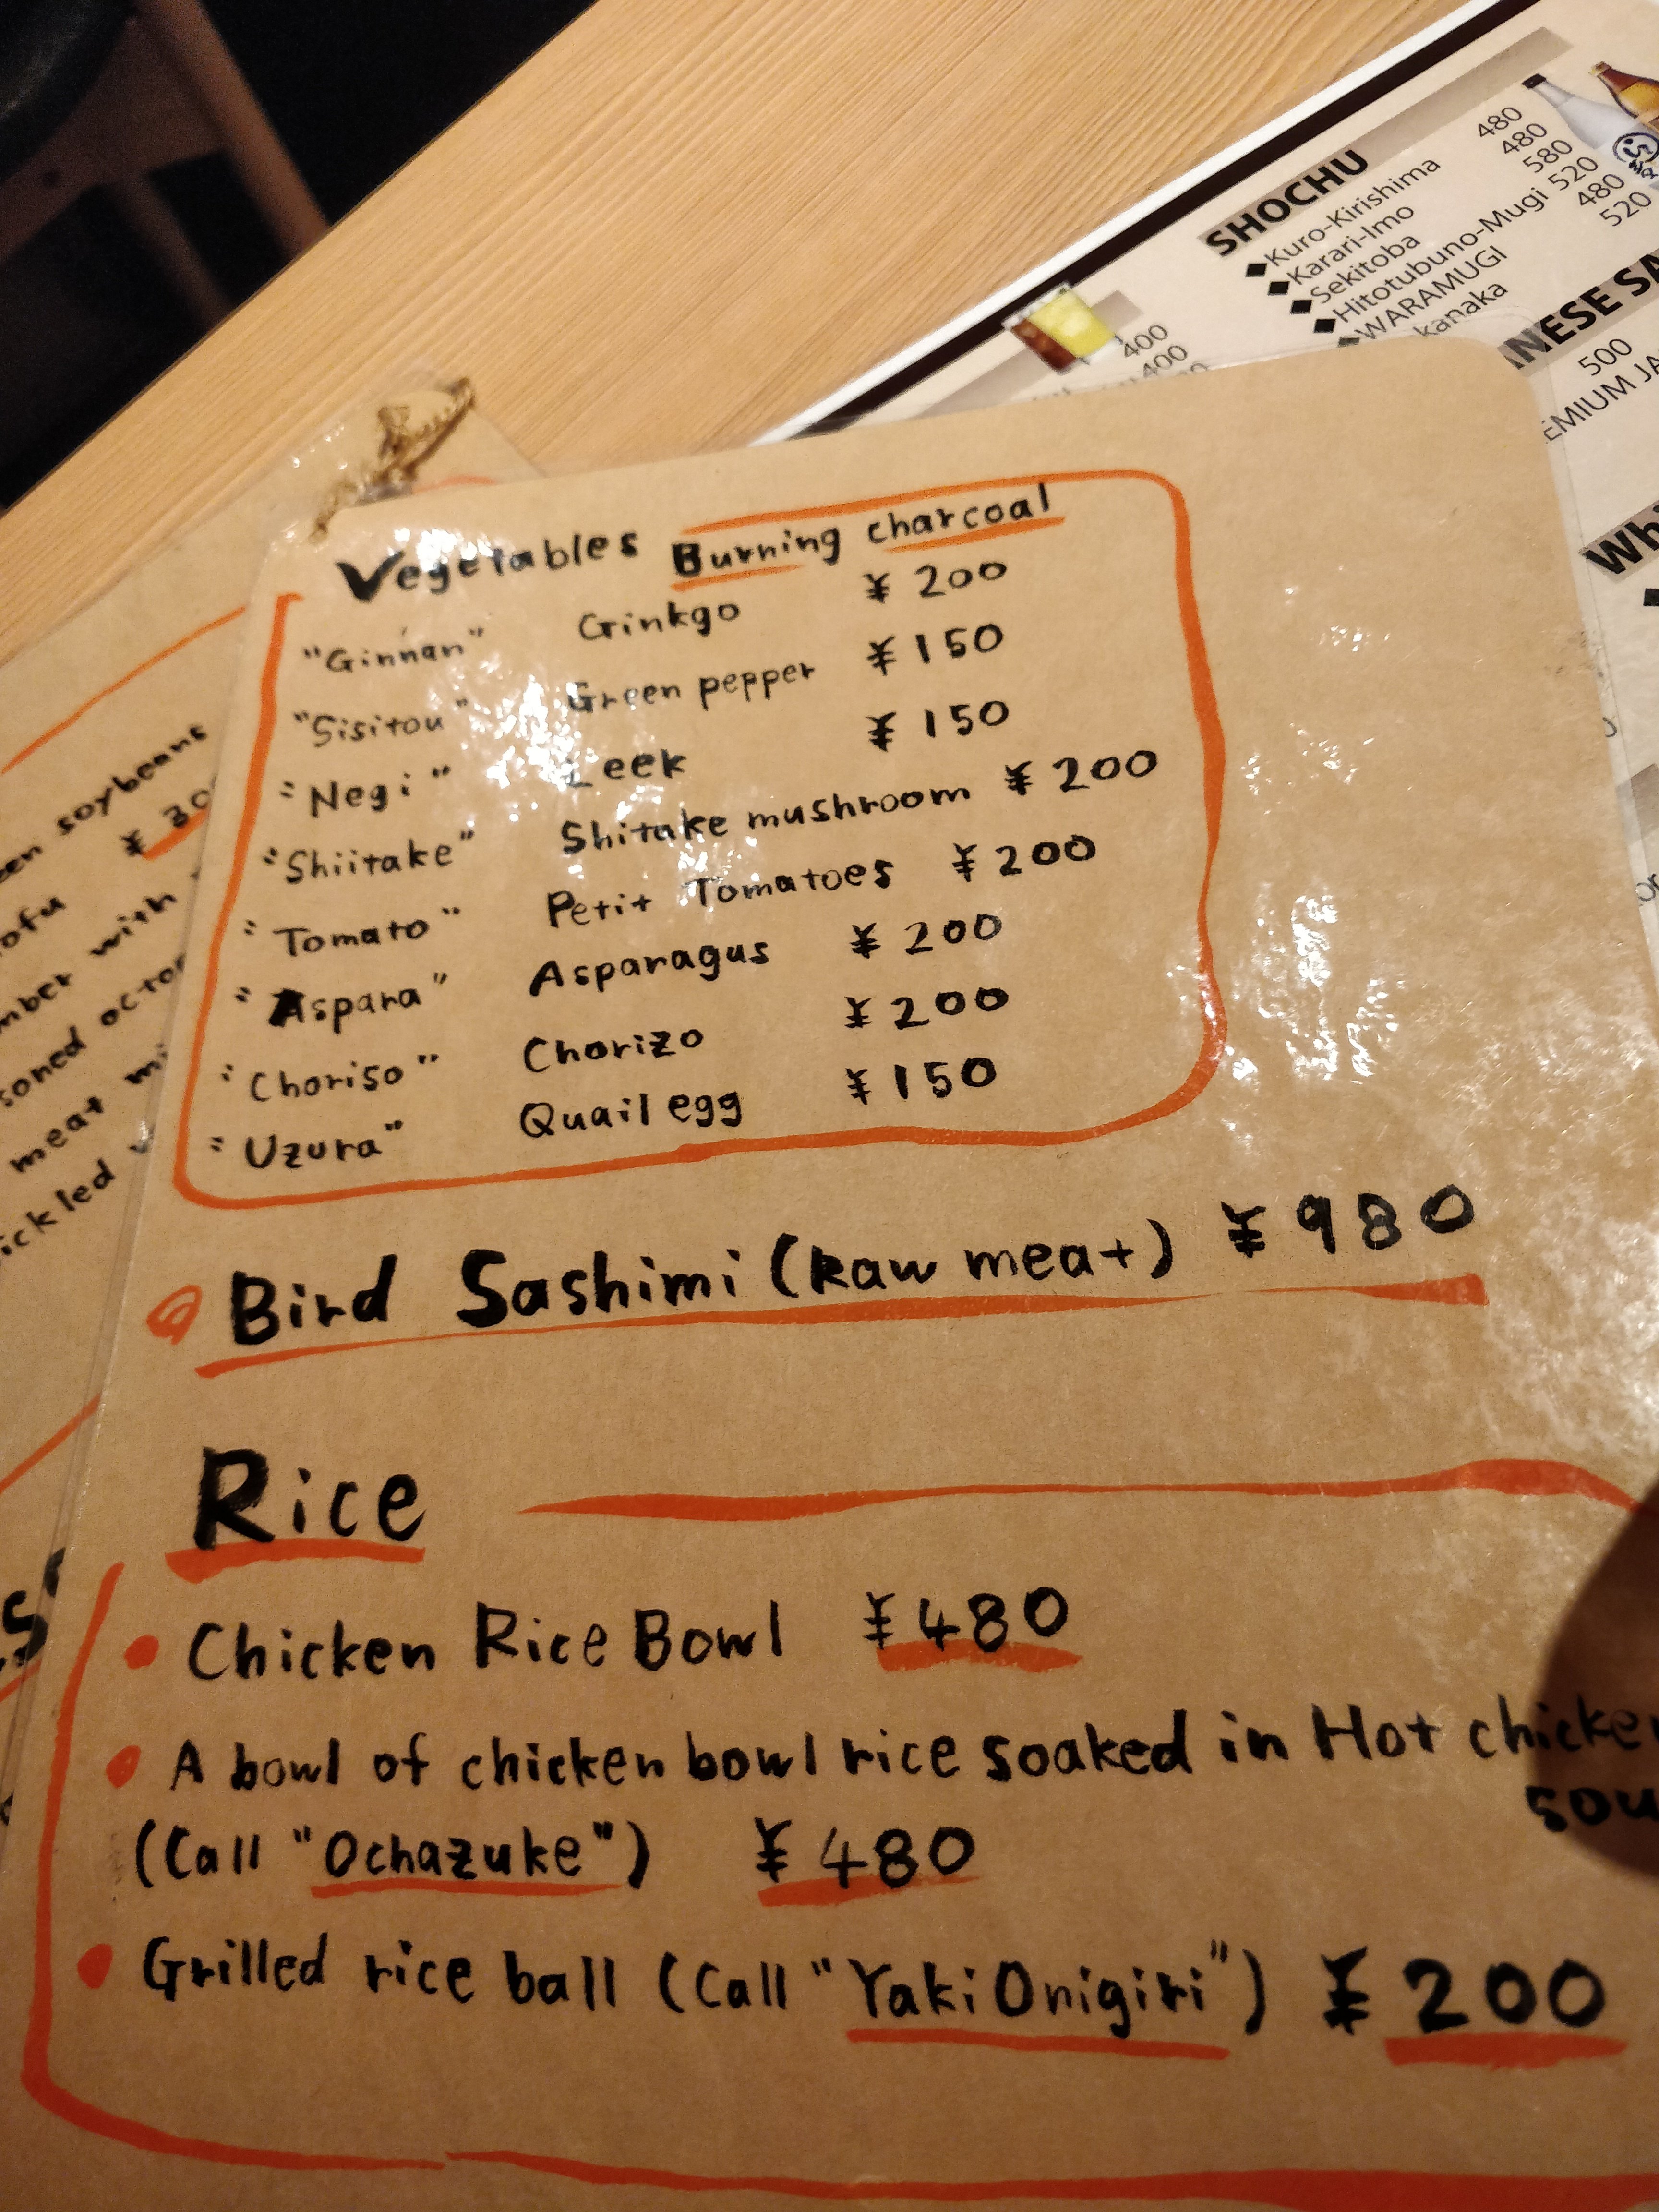 Vegetables Burning charcoal
"Ginnan" Ginkgo ¥200
"Sisitou" Green pepper ¥150
"Negi" Leek ¥150
"Shiitake" Shitake mushroom ¥200
"Tomato" Petit Tomatoes ¥200
"Aspara" Asparagus ¥200
"Choriso" Chorizo ¥200
"Uzura" Quail egg ¥150
Bird Sashimi (Raw meat) ¥980
Rice
Chicken Rice Bowl ¥480
A bowl of chicken bowl rice soaked in Hot chicke
sou
(Call "Ochazuke") ¥480
Grilled rice ball (Call "Yaki Onigiri") ¥200
een soybeans
¥ 30
ofu
mber with
soned octo
meat mi
ickled
SHOCHU
◆Kuro-Kirishima 480
◆Karari-Imo 480
◆Sekitoba 580
◆Hitotubuno-Mugi 520
◆WARAMUGI 480
kanaka 520
NESE SA
500
EMIUM JA
Whi
400
400